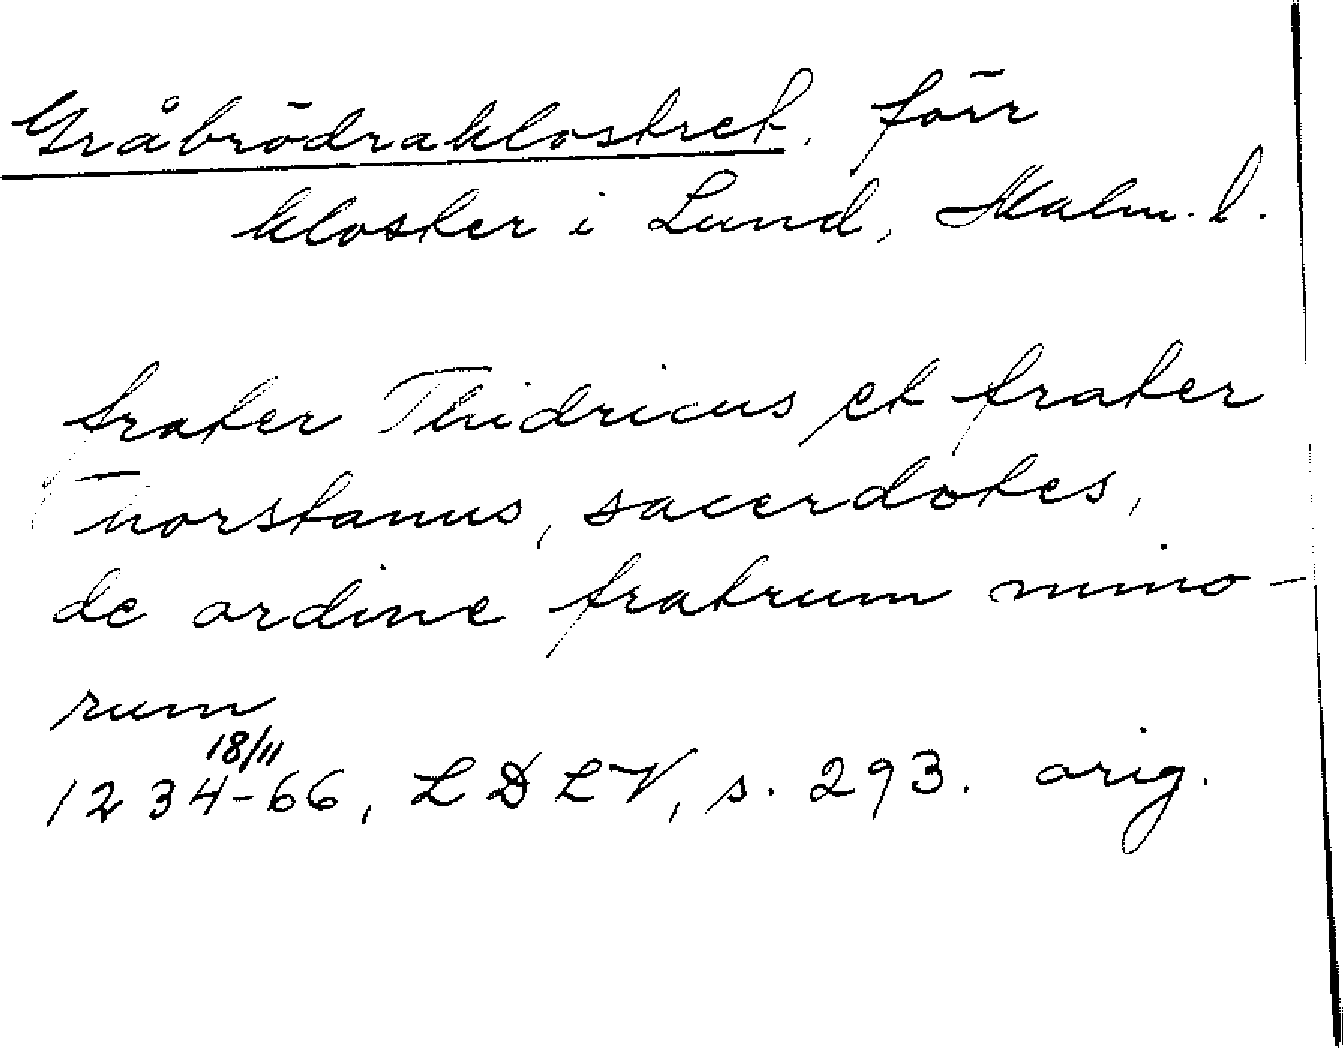 Gråbrödraklostret, förr
kloster i Lund, Malm. l.
frater Thidricus et frater
Thorstanus, sacerdotes,
de ordine fratrum mino-
rum
18/11
1234-66, LDLV, s. 293. orig.